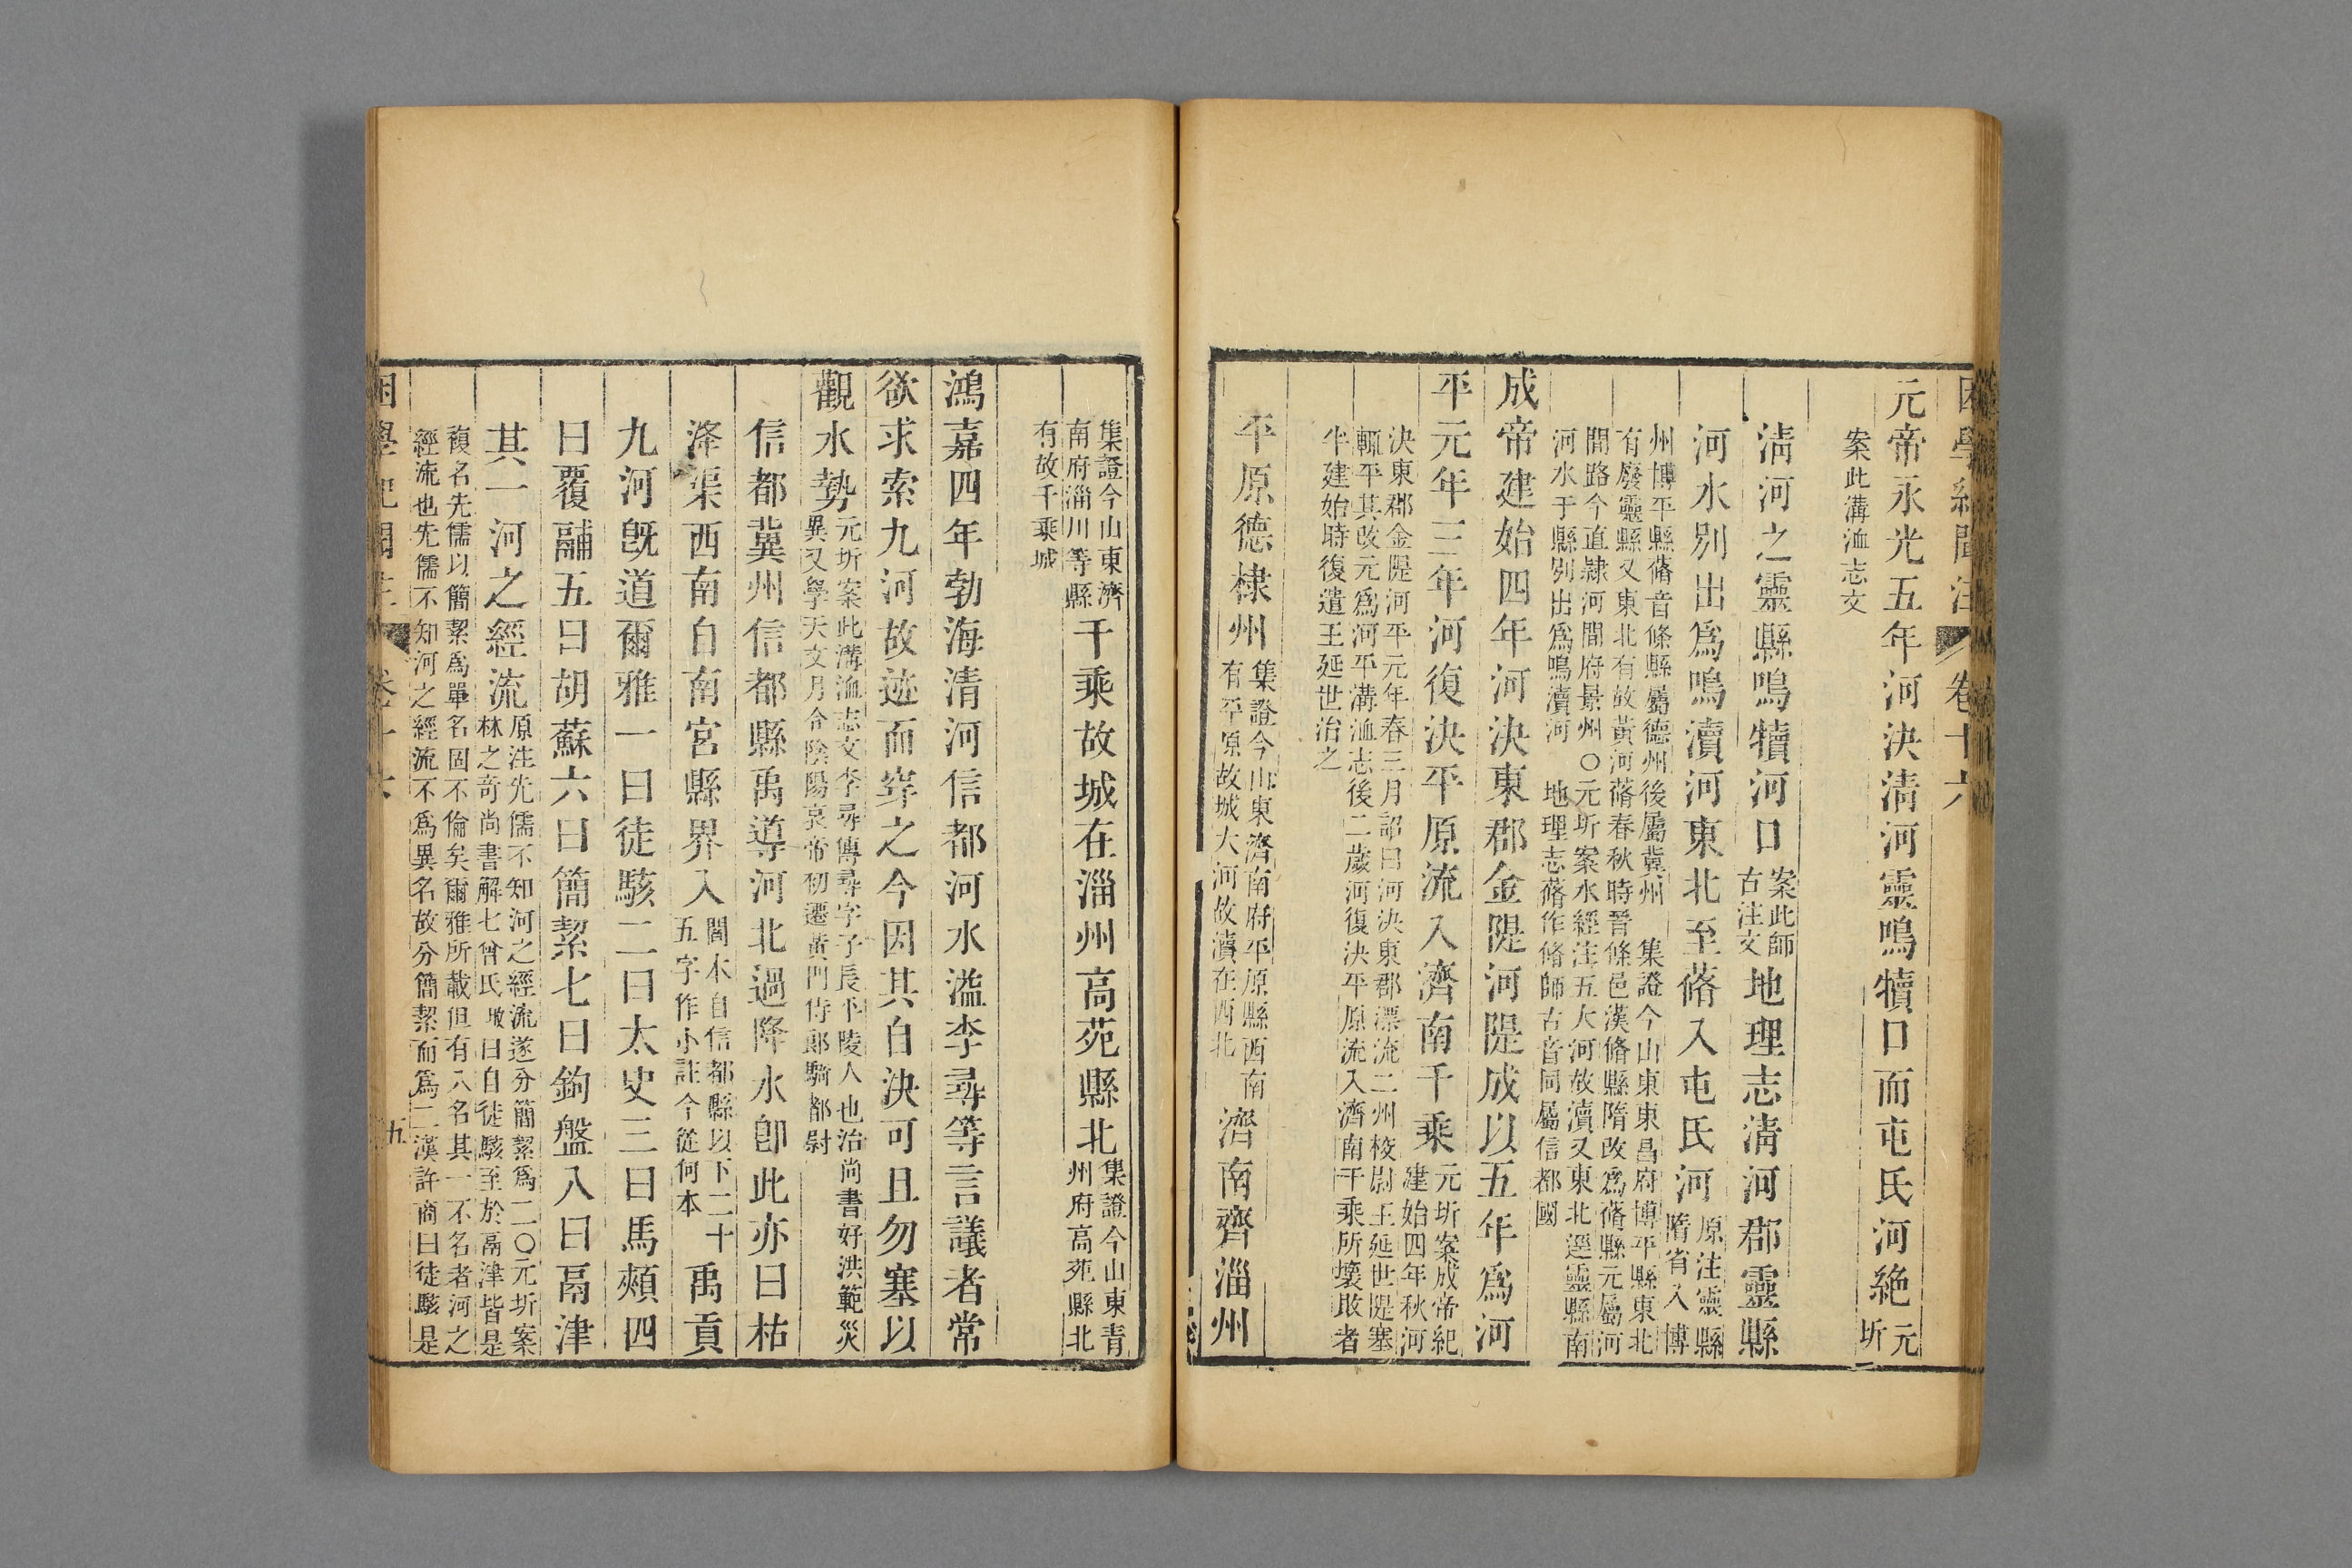 困學紀聞注 卷十六
元帝永光五年河決淸河靈鳴犢口而屯氏河絶元圻
案此溝洫志文
淸河之靈縣鳴犢河口案此師古注文地理志淸河郡靈縣
河水別出爲鳴瀆河東北至蓨入屯氏河原注靈縣隋省入博
州博平縣蓨音條縣屬德州後屬冀州 集證今山東東昌府博平縣東北
有廢靈縣又東北有故黃河蓨春秋時晉條邑漢脩縣隋改爲蓨縣元屬河
間路今直隸河間府景州○元圻案水經注五大河故瀆又東北逕靈縣南
河水于縣別出爲鳴瀆河 地理志蓨作脩師古音同屬信都國
成帝建始四年河決東郡金隄河隄成以五年爲河
平元年三年河復決平原流入濟南千乘元圻案成帝紀建始四年秋河
決東郡金隄河平元年春三月詔曰河決東郡漂流二州校尉王延世隄塞
輒平其改元爲河平溝洫志後二歲河復決平原流入濟南千乘所壞敗者
半建始時復遣王延世治之
平原德棣州集證今山東濟南府平原縣西南有平原故城大河故瀆在西北濟南齊淄州
集證今山東濟南府淄川等縣千乘故城在淄州高苑縣北集證今山東靑州府高苑縣北
有故千乘城
鴻嘉四年勃海清河信都河水溢李尋等言議者常
欲求索九河故迹而穿之今因其自決可且勿塞以
觀水勢元圻案此溝洫志文李尋傳尋字子長平陵人也治尚書好洪範災異又學天文月令陰陽哀帝初遷黃門侍郞騎都尉
信都冀州信都縣禹導河北過降水卽此亦曰枯
洚渠西南自南宮縣界入閻本自信都縣以下二十五字作小註今從何本禹貢
九河旣道爾雅一曰徒駭二曰太史三曰馬頰四
曰覆鬴五曰胡蘇六曰簡絜七曰鉤盤八曰鬲津
其一河之經流原注先儒不知河之經流遂分簡絜爲二○元圻案林之奇尚書解七曾氏曰自徒駭至於鬲津皆是
複名先儒以簡絜爲單名固不倫矣爾雅所載但有八名其一不名者河之
經流也先儒不知河之經流不爲異名故分簡絜而爲二漢許商曰徒駭是
困學紀聞注 卷十六 九